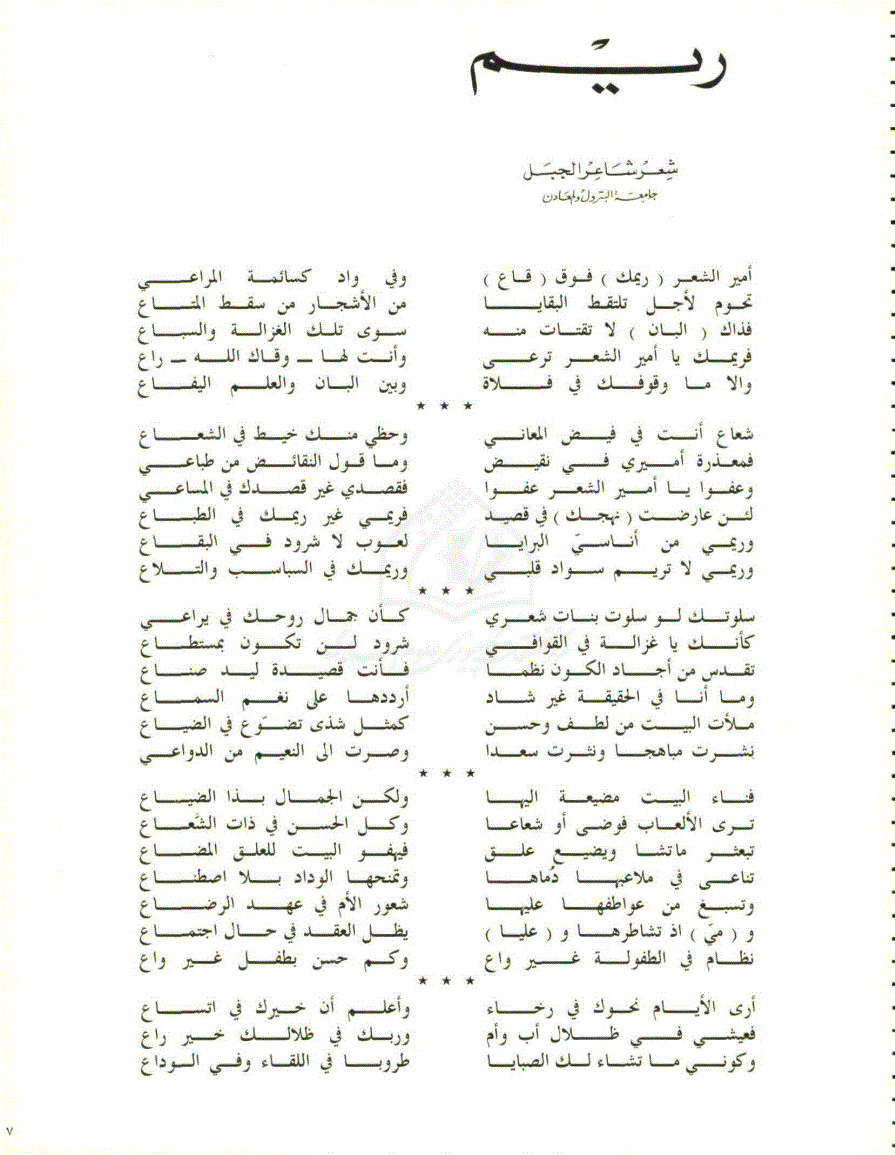 ريم
شعر شاعر الجبل
جامعة البترول والمعادن
أمير الشعر ( ريمك ) فوق ( قاع ) وفي واد كسائمة المراعي
تحوم لأجل تلتقط البقايا من الأشجار من سقط المتاع
فذاك ( البان ) لا تقتات منه سوى تلك الغزالة والسباع
فريمك يا أمير الشعر ترعى وأنت لها ـ وقاك الله ـ راع
والا ما وقوفك في فلاة وبين البان والعلم اليفاع
★ ★ ★
شعاع أنت في فيض المعاني وحظي منك خيط في الشعاع
فمعذرة أميري في نقيض وما قول النقائض من طباعي
وعفوا يا أمير الشعر عفوا فقصدي غير قصدك في المساعي
لئن عارضت ( نهجك ) في قصيد فريمي غير ريمك في الطباع
وريمي من أناسيّ البرايا لعوب لا شرود في البقاع
وريمي لا تريم سواد قلبي وريمك في السباسب والتلاع
★ ★ ★
سلوتك لو سلوت بنات شعري كأن جمال روحك في يراعي
كأنك يا غزالة في القوافي شرود لن تكون بمستطاع
تقدس من أجاد الكون نظما فأنت قصيدة ليد صناع
وما أنا في الحقيقة غير شاد أرددها على نغم السماع
ملأت البيت من لطف وحسن كمثل شذى تضوّع في الضياع
نشرت مباهجا ونثرت سعدا وصرت الى النعيم من الدواعي
★ ★ ★
فناء البيت مضيعة اليها ولكن الجمال بذا الضياع
ترى الألعاب فوضى أو شعاعا وكل الحسن في ذات الشَّعاع
تبعثر ماتشا ويضيع علق فيهفو البيت للعلق المضاع
تناغى في ملاعبها دُماها وتمنحها الوداد بلا اصطناع
وتسبغ من عواطفها عليها شعور الأم في عهد الرضاع
و ( ميّ ) اذ تشاطرها و ( عليا ) يظل العقد في حال اجتماع
نظام في الطفولة غير واع وكم حسن بطفل غير واع
★ ★ ★
أرى الأيام نحوك في رخاء وأعلم أن خيرك في اتساع
فعيشي في ظلال أب وأم وربك في ظلالك خير راع
وكوني ما تشاء لك الصبايا طروبا في اللقاء وفي الوداع
٧